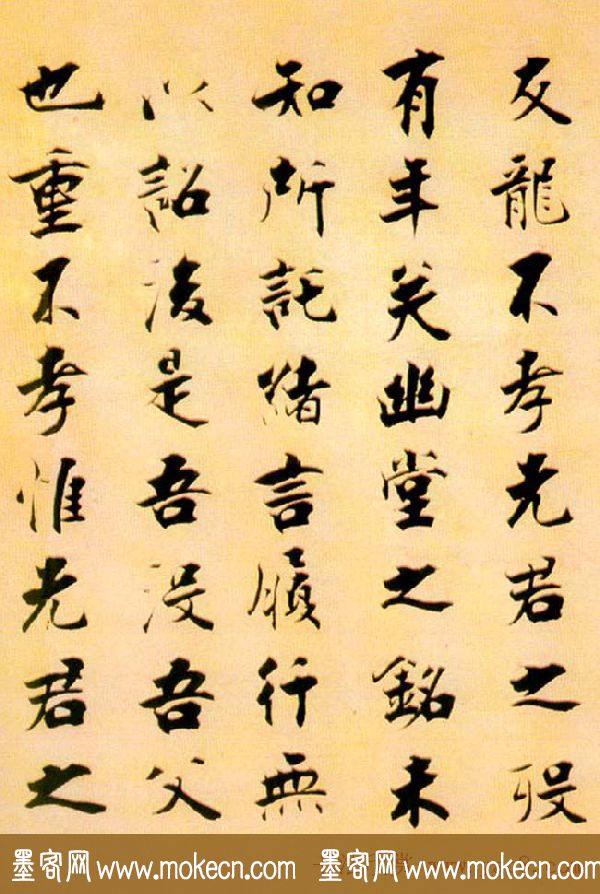 友龍不孝先君之歿
有年矣幽堂之銘未
知所託緒言履行無
以詔後是吾没吾父
也重不孝惟先君之
墨客网 www.mokecn.com 墨客网 www.mokecn.com